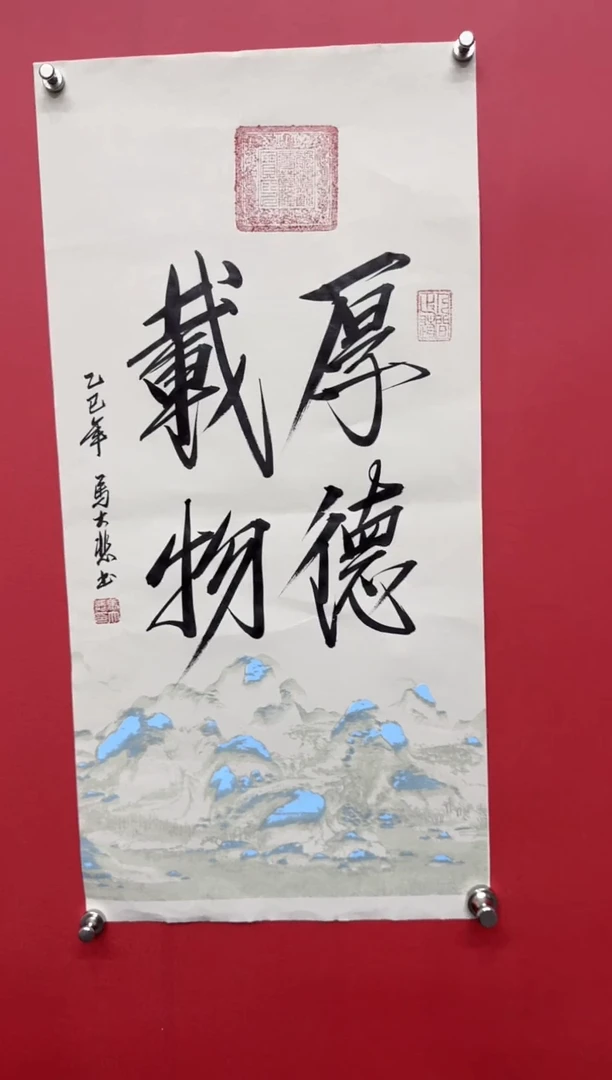 厚德
載物
乙巳年 馬大悲书